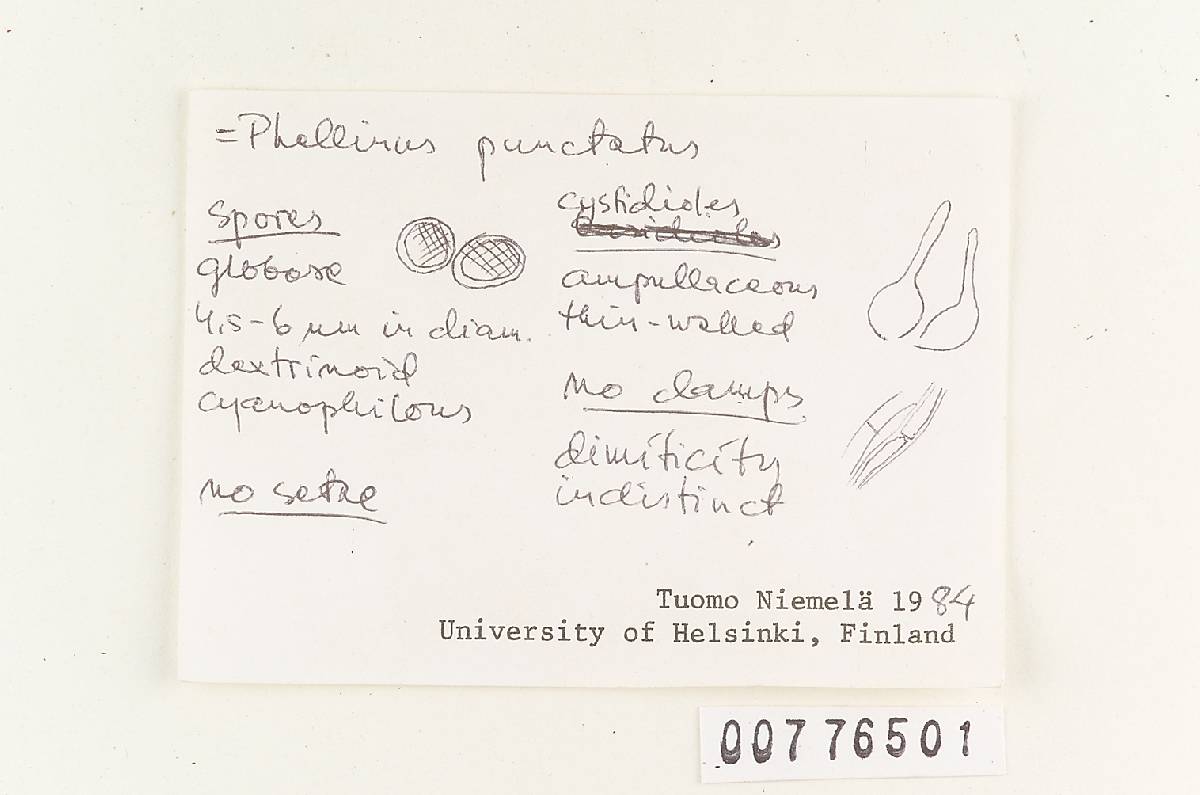 =Phellinus punctatus
spores
globose
4,5-6 µm in diam.
dextrinoid
cyanophilous
no setae
cystidioles
ampullaceous
thin-walled
no clamps
dimiticity
indistinct
Tuomo Niemelä 1984
University of Helsinki, Finland
00776501